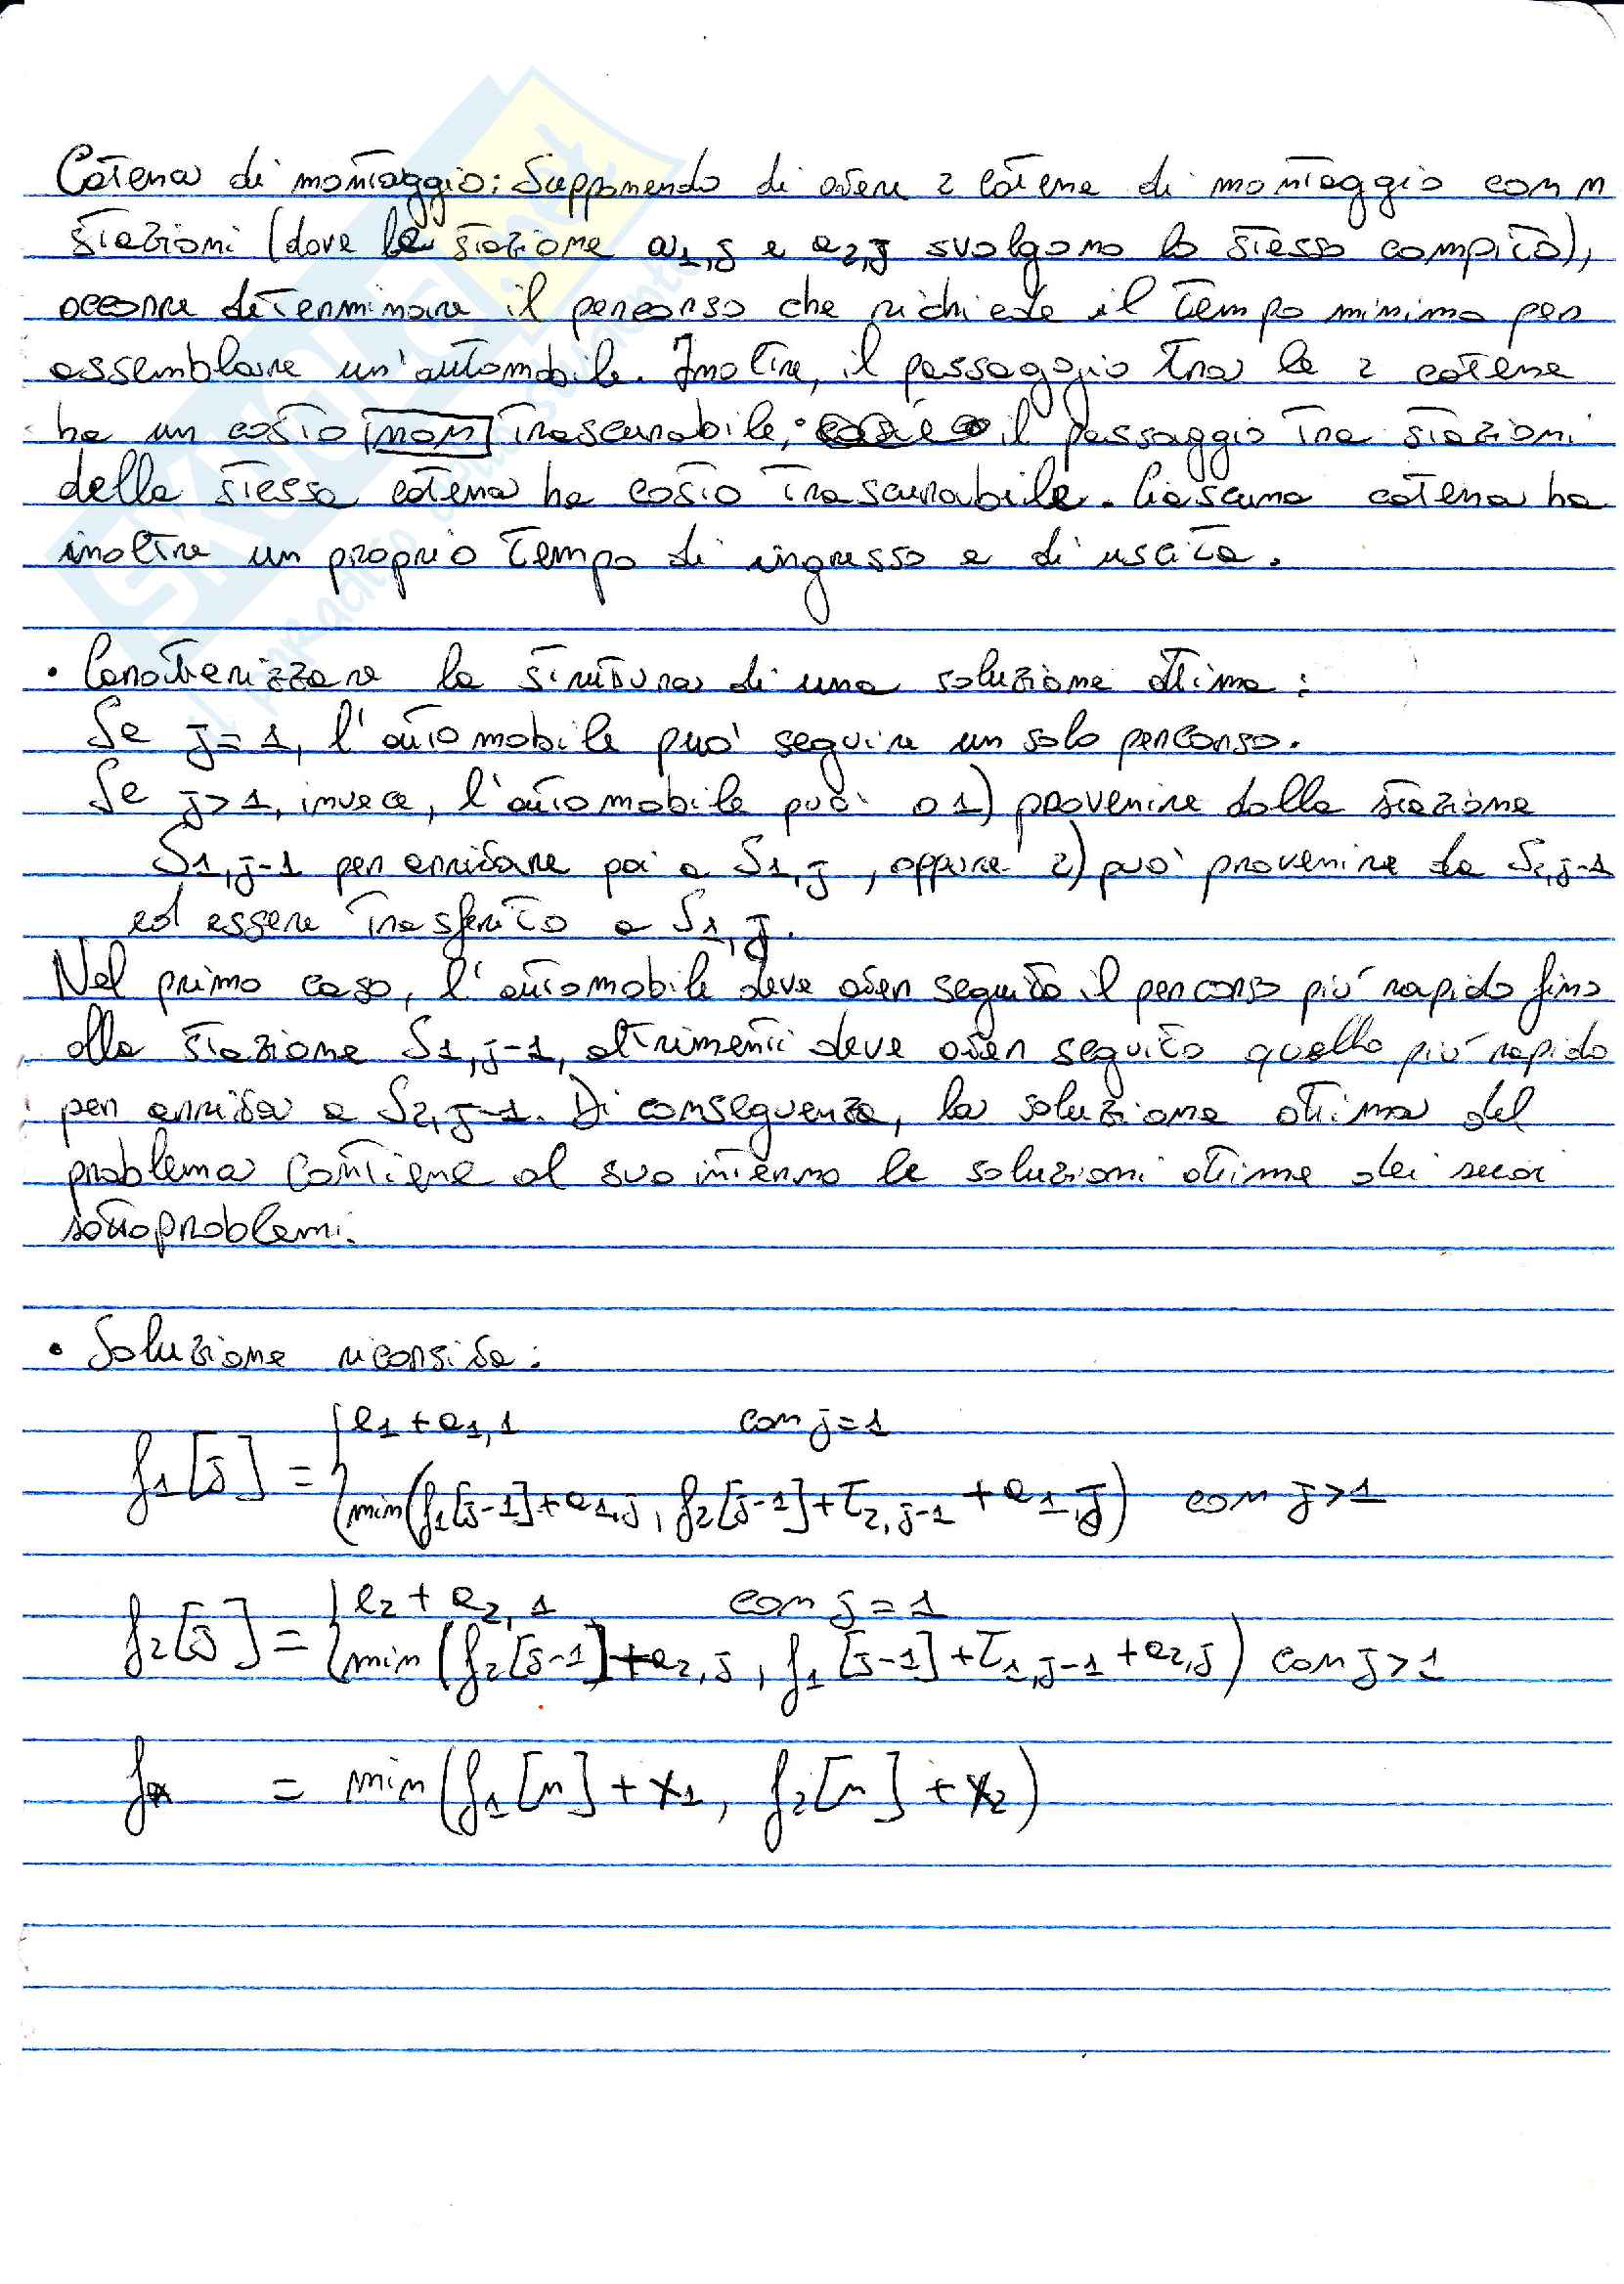 Catena di montaggio: Supponendo di avere 2 catene di montaggio con n
stazioni (dove le stazione a1,j e a2,j svolgono lo stesso compito),
occorre determinare il percorso che richiede il tempo minimo per
assemblare un'automobile. Inoltre, il passaggio tra le 2 catene
ha un costo non trascurabile, il passaggio tra stazioni
della stessa catena ha costo trascurabile. Ciascuna catena ha
inoltre un proprio tempo di ingresso e di uscita.
• Caratterizzare la struttura di una soluzione ottima:
Se j=1, l'automobile può seguire un solo percorso.
Se j>1, invece, l'automobile può: o 1) provenire dalla stazione
S1,j-1 per arrivare poi a S1,j, oppure 2) può provenire da S2,j-1
ed essere trasferito a S1,j.
Nel primo caso, l'automobile deve aver seguito il percorso più rapido fino
alla stazione S1,j-1, altrimenti deve aver seguito quello più rapido
per arriva a S2,j-1. Di conseguenza, la soluzione ottima del
problema contiene al suo interno le soluzioni ottime dei suoi
sottoproblemi.
• Soluzione ricorsiva:
e1 + a1,1 con j=1
f1[j] = { min(f1[j-1]+a1,j, f2[j-1]+t2,j-1 + a1,j) con j>1
e2 + a2,1 con j=1
f2[j] = { min(f2[j-1]+a2,j, f1[j-1]+t1,j-1 + a2,j) con j>1
f* = min(f1[n] + x1, f2[n] + x2)
SKUOLA.net